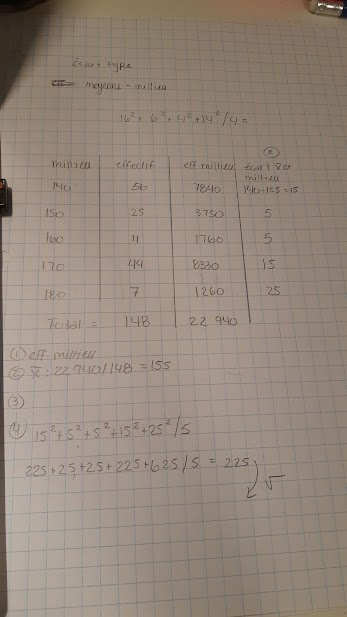 écart type
eff moyenne - milieu
16² + 6² + 4² + 14² / 4 =
②
millieu effectif eff·millieu écart &et millieu
140 56 7840 140-155=15
150 25 3750 5
160 11 1760 5
170 49 8330 15
180 7 1260 25
Total = 148 22 940
① eff·millieu
② x̄ : 22 940/148 = 155
③
④ 15² + 5² + 5² + 15² + 25² / 5
225 + 25 + 25 + 225 + 625 / 5 = 225
√